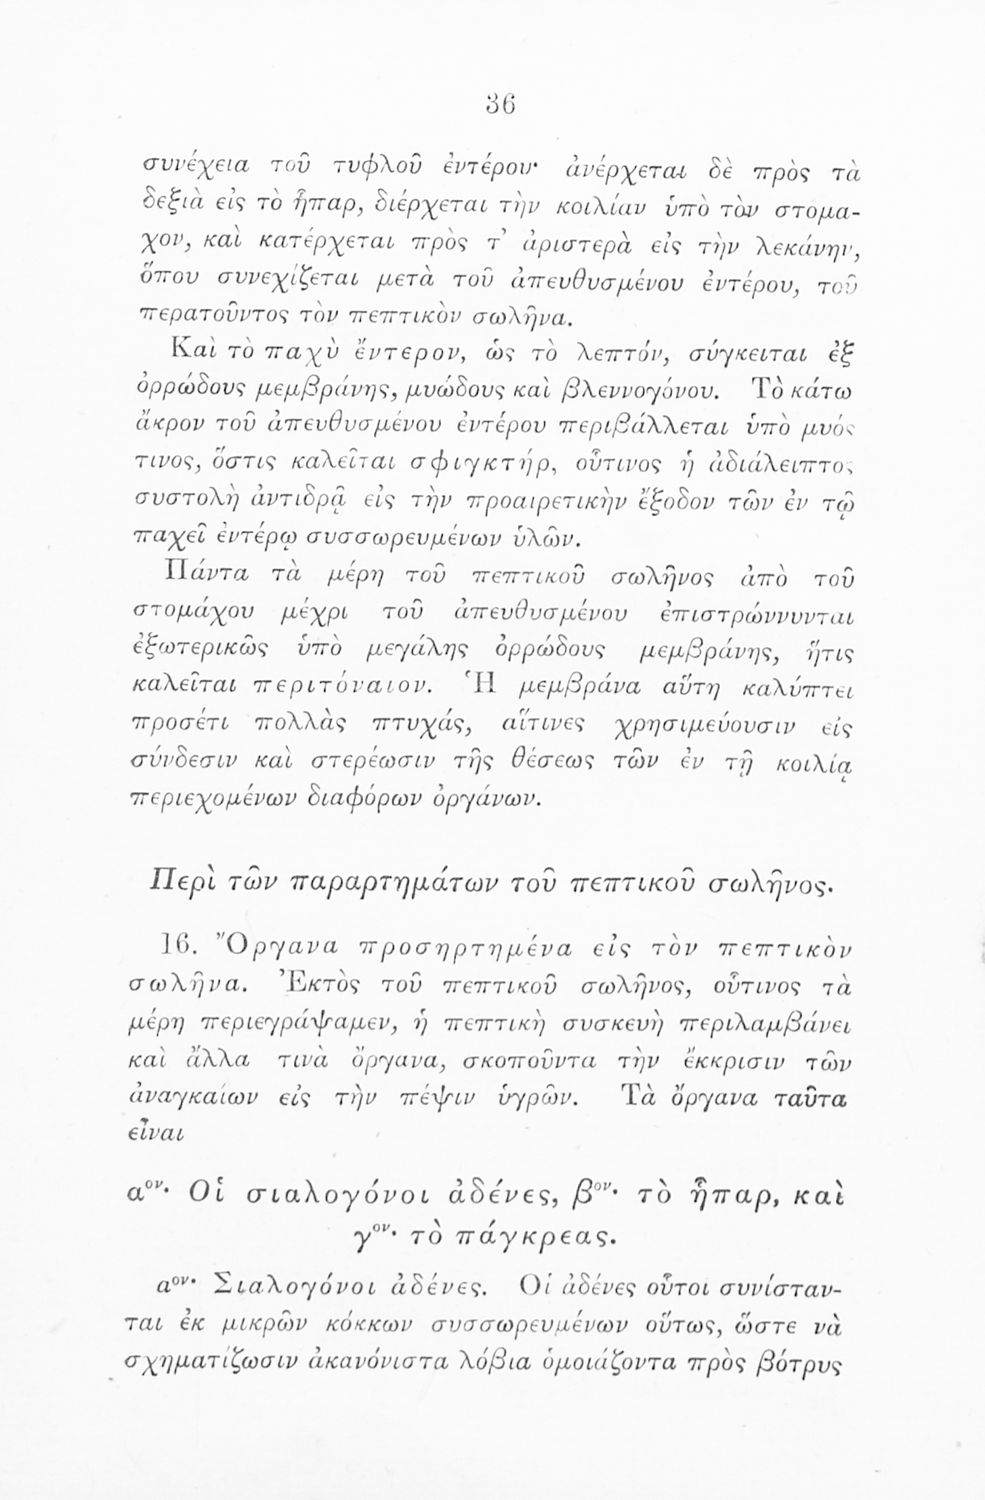 36
συνέχεια τοῦ τυφλοῦ ἐντέρου· ἀνέρχεται δὲ πρὸς τὰ
δεξιὰ εἰς τὸ ἧπαρ, διέρχεται τὴν κοιλίαν ὑπὸ τὸν στομα-
χον, καὶ κατέρχεται πρὸς τ’ ἀριστερὰ εἰς τὴν λεκάνην,
ὅπου συνεχίζεται μετὰ τοῦ ἀπευθυσμένου ἐντέρου, τοῦ
περατοῦντος τὸν πεπτικὸν σωλῆνα.
Καὶ τὸ παχὺ ἔντερον, ὡς τὸ λεπτόν, σύγκειται ἐξ
ὀρρώδους μεμβράνης, μυώδους καὶ βλεννογόνου. Τὸ κάτω
ἄκρον τοῦ ἀπευθυσμένου ἐντέρου περιβάλλεται ὑπὸ μυός
τινος, ὅστις καλεῖται σφιγκτήρ, οὗτινος ἡ ἀδιάλειπτος
συστολὴ ἀντιδρᾷ εἰς τὴν προαιρετικὴν ἔξοδον τῶν ἐν τῷ
παχεῖ ἐντέρῳ συσσωρευμένων ὑλῶν.
Πάντα τὰ μέρη τοῦ πεπτικοῦ σωλῆνος ἀπὸ τοῦ
στομάχου μέχρι τοῦ ἀπευθυσμένου ἐπιστρώννυνται
ἐξωτερικῶς ὑπὸ μεγάλης ὀρρώδους μεμβράνης, ἥτις
καλεῖται περιτόναιον. Ἡ μεμβράνα αὕτη καλύπτει
προσέτι πολλὰς πτυχάς, αἵτινες χρησιμεύουσιν εἰς
σύνδεσιν καὶ στερέωσιν τῆς θέσεως τῶν ἐν τῇ κοιλίᾳ
περιεχομένων διαφόρων ὀργάνων.
Περὶ τῶν παραρτημάτων τοῦ πεπτικοῦ σωλῆνος.
16. Ὄργανα προσηρτημένα εἰς τὸν πεπτικὸν
σωλῆνα. Ἐκτὸς τοῦ πεπτικοῦ σωλῆνος, οὗτινος τὰ
μέρη περιεγράψαμεν, ἡ πεπτικὴ συσκευὴ περιλαμβάνει
καὶ ἄλλα τινὰ ὄργανα, σκοποῦντα τὴν ἔκκρισιν τῶν
ἀναγκαίων εἰς τὴν πέψιν ὑγρῶν. Τὰ ὄργανα ταῦτα
εἶναι
αᵒᵛ· Οἱ σιαλογόνοι ἀδένες, βᵒᵛ· τὸ ἧπαρ, καὶ
γᵒᵛ· τὸ πάγκρεας.
αᵒᵛ· Σιαλογόνοι ἀδένες. Οἱ ἀδένες οὗτοι συνίσταν-
ται ἐκ μικρῶν κόκκων συσσωρευμένων οὕτως, ὥστε νὰ
σχηματίζωσιν ἀκανόνιστα λόβια ὁμοιάζοντα πρὸς βότρυς